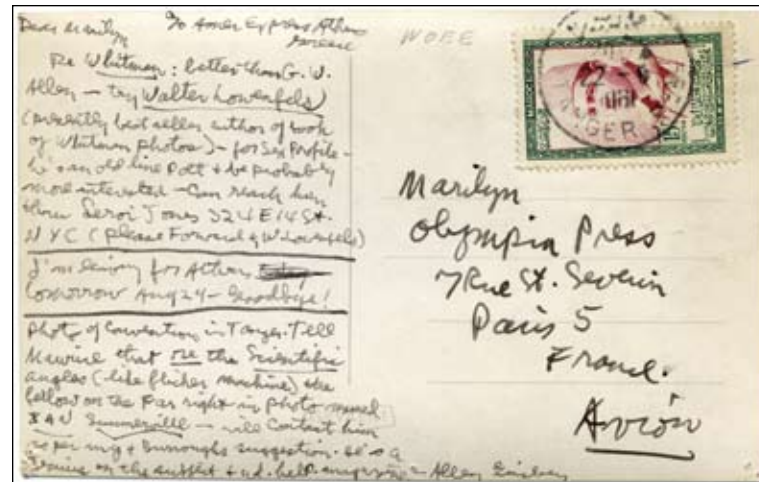 Dear Marilyn
To Amer Express Athens
Greece
Re Whitman: better than G. W.
Allen — try Walter Lowenfels
(presently best seller author of book
of Whitman photos) — for Sex Profile —
he's an old line Poet & be probably
more interested — Can reach him
thru Leroi Jones 324 E 14 St.
NYC (Please Forward to W Lowenfels)
I'm leaving for Athens
tomorrow Aug 24 — Goodbye!
Photo of Convention in Tanger. Tell
Maurice that re the Scientific
angles (like flicker machine) the
fellow on the far right in photo named
IAN Summerville — will contact him
as per my & Burroughs suggestion. He's a
Genius on the subject & help — Allen Ginsberg
TANGER
Marilyn
Olympia Press
7 Rue St. Severin
Paris 5
France.
Avión